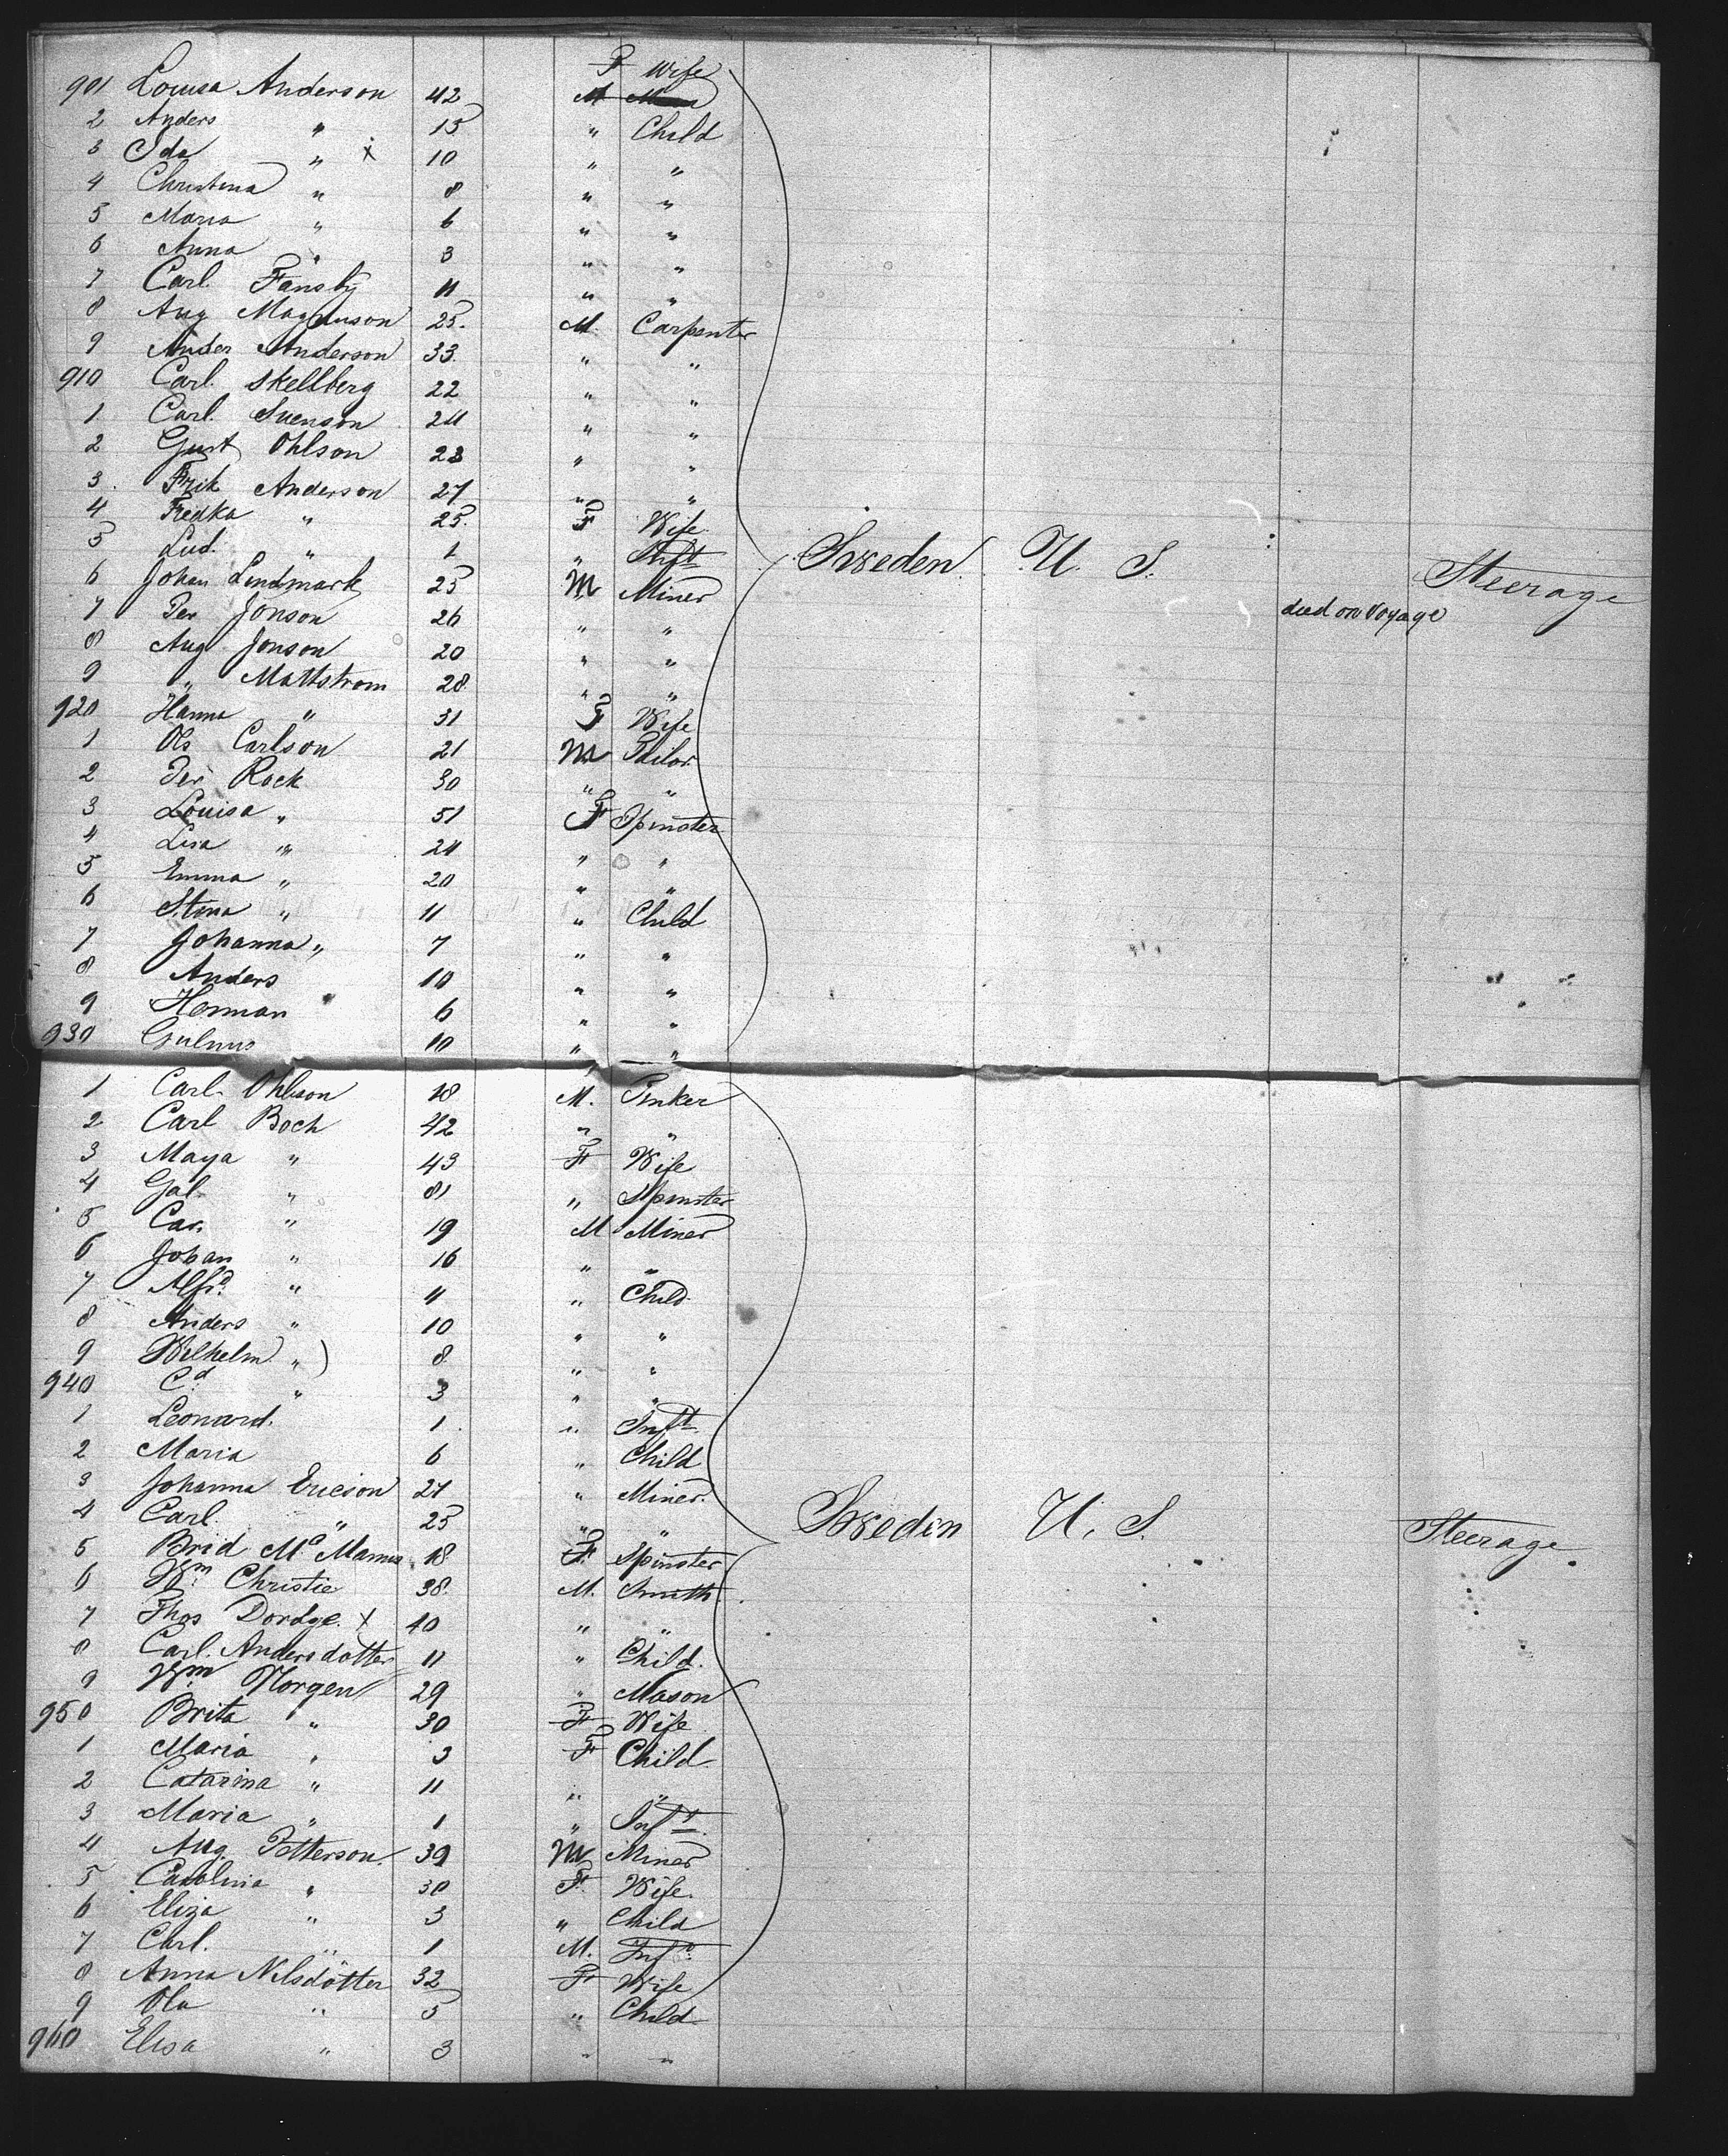 901 Louisa Anderson 42 F Wife
2 Anders " 15 " Child
3 Ida " x 10 " "
4 Christina " 8 " "
5 Maria " 6 " "
6 Anna " 3 " "
7 Carl. Fansby 11 " "
8 Aug Magnuson 25. M. Carpenter
9 Ander Anderson 33. " "
910 Carl. Skellberg 22 " "
1 Carl. Svenson 24 " "
2 Gust Ohlson 23 " "
3 Frik Anderson 27 " "
4 Fredka " 25. F Wife
5 Lud. " 1 " Inft Sweden. U. S. Steerage
6 Johan Lindmark 25 M Miner
7 Per Jonson 26 " " died on Voyage
8 Aug Jonson 20 " "
9 " Mattstrom 28 " "
920 Hanna " 31 F Wife
1 Ols Carlson 21 M Tailor
2 Per Rock 30 " "
3 Louisa " 51 F Spinster
4 Lisa " 24 " "
5 Emma " 20 " "
6 Stina " 11 " Child
7 Johanna " 7 " "
8 Anders 10 " "
9 Herman " 6 " "
930 10 " "
1 Carl. Ohlson 18 M. Tinker
2 Carl Boch 42 " "
3 Maya " 43 F Wife
4 Gal " 81 " Spinster
5 Car. " 19 M Miner
6 Johan " 16 " "
7 Alfd. " 11 " Child.
8 Anders " 10 " "
9 Wilhelm " ) 8 " "
940 Cd. " 3 " "
1 Leonard. 1. " Inft.
2 Maria 6 " Child
3 Johanna Ericson 27 " Miner.
4 Carl " 25 " " Sweden U. S. Steerage
5 Brid McManus 18 F Spinster
6 Wm. Christie 38 M. Smith
7 Thos Dordge. x 40 " "
8 Carl. Andersdotter 11 " Child.
9 Wm Norgen 29 " Mason
950 Brita " 30 F Wife
1 Maria " 3 F Child
2 Catarina " 11 " "
3 Maria " 1 " Inft.
4 Aug. Petterson. 39 M Miner
5 Carolina " 30 F. Wife.
6 Eliza " 3 " Child
7 Carl. " 1 M. Inft.
8 Anna Nilsdotter 32 F Wife
9 Ola " 5 " Child
960 Elisa " 3 " "